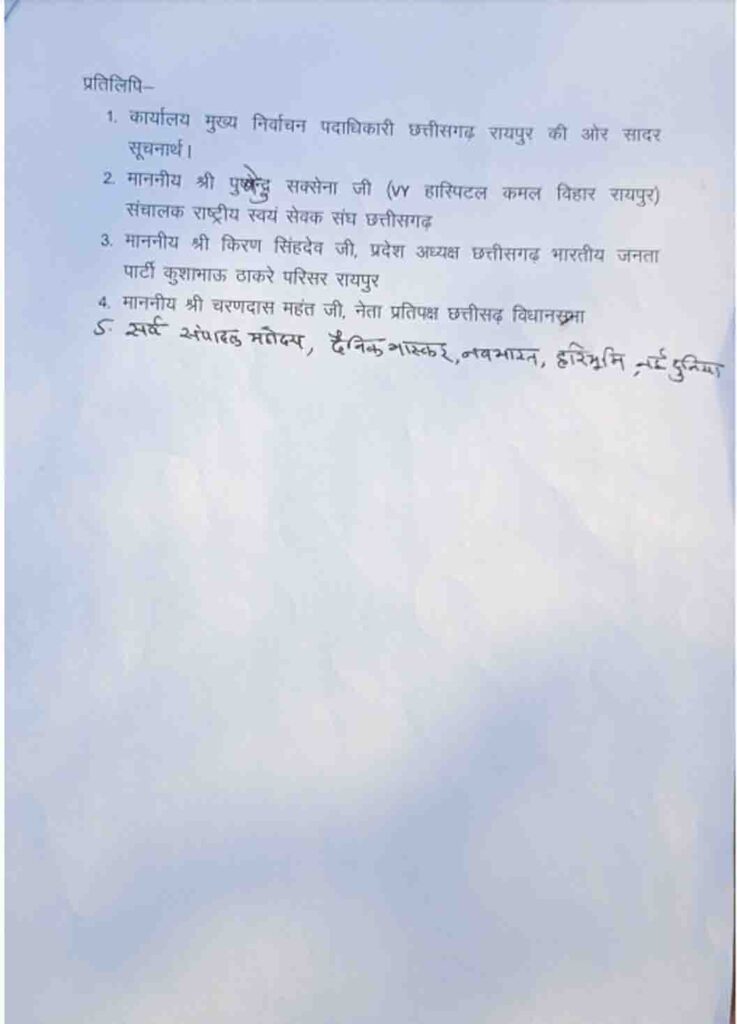 प्रतिलिपि–
1. कार्यालय मुख्य निर्वाचन पदाधिकारी छत्तीसगढ़ रायपुर की ओर सादर
सूचनार्थ।
2. माननीय श्री पुष्पेन्द्रु सक्सेना जी (VY हास्पिटल कमल विहार रायपुर)
संचालक राष्ट्रीय स्वयं सेवक संघ छत्तीसगढ़
3. माननीय श्री किरण सिंहदेव जी, प्रदेश अध्यक्ष छत्तीसगढ़ भारतीय जनता
पार्टी कुशाभाऊ ठाकरे परिसर रायपुर
4. माननीय श्री चरणदास महंत जी, नेता प्रतिपक्ष छत्तीसढ़ विधानसभा
5. सर्व संपादक महोदय, दैनिक भास्कर, नवभारत, हरिभूमि, नई दुनिया